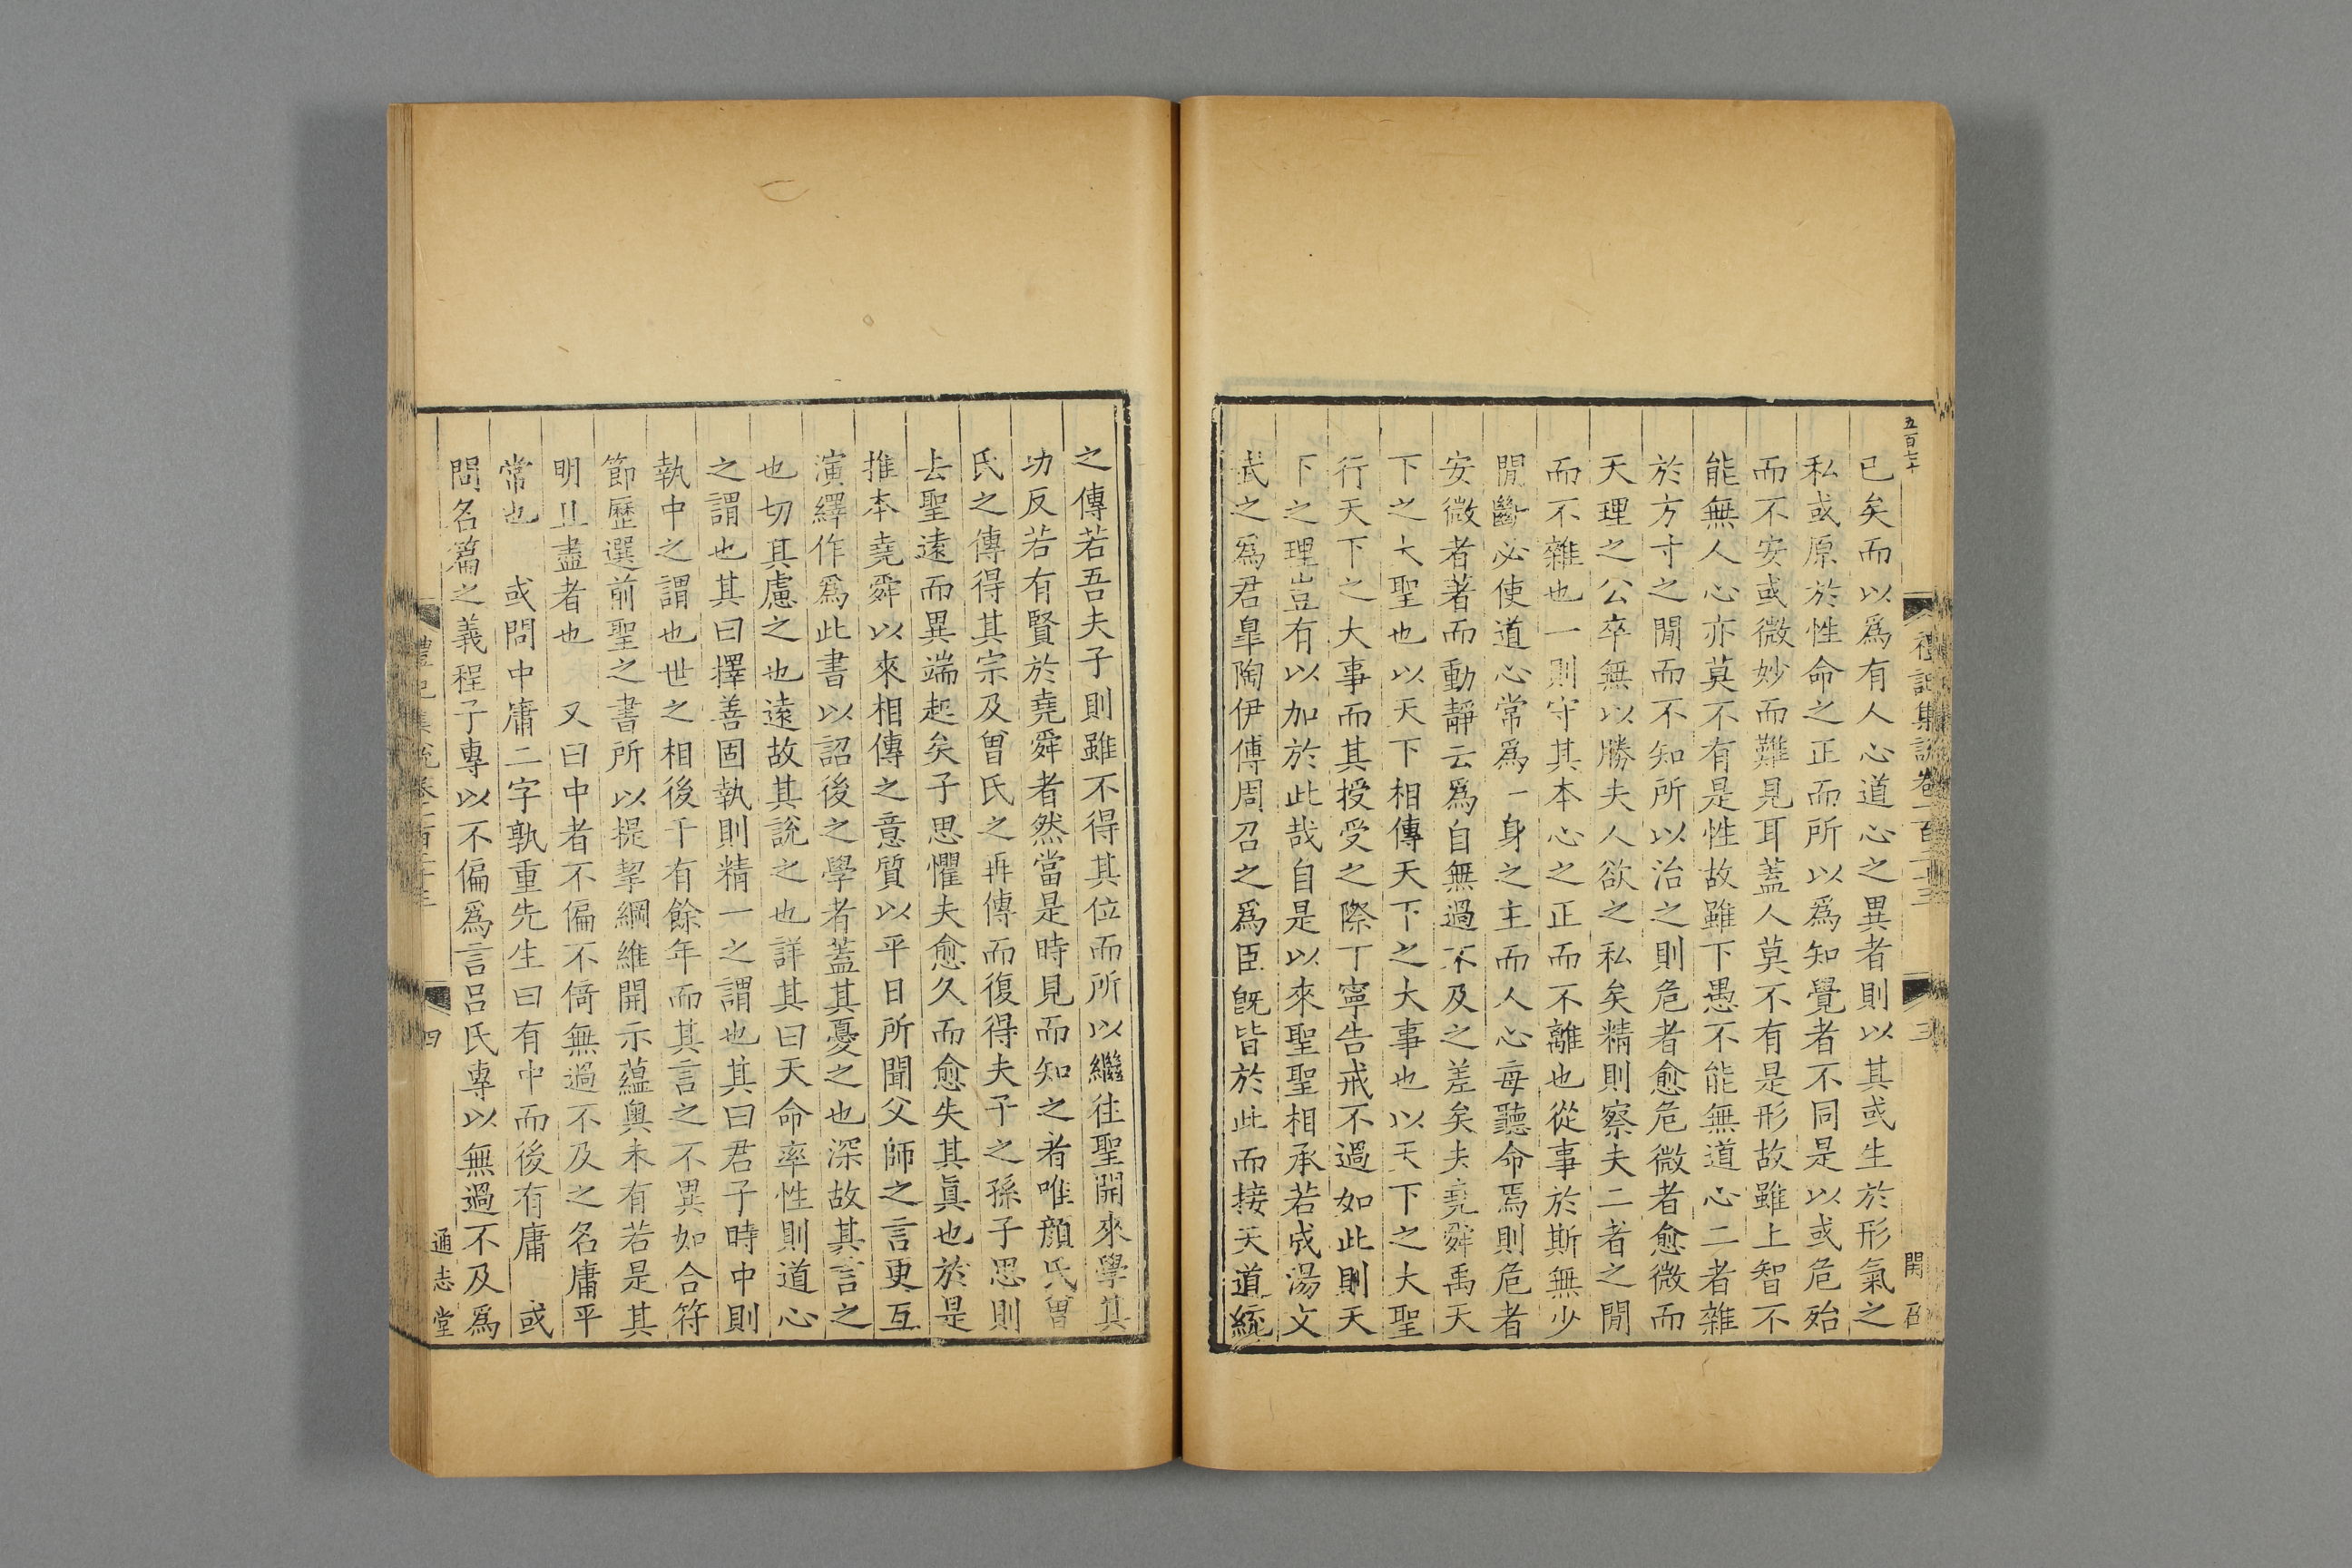 五百七十
已矣而以爲有人心道心之異者則以其或生於形氣之
私或原於性命之正而所以爲知覺者不同是以或危殆
而不安或微妙而難見耳蓋人莫不有是形故雖上智不
能無人心亦莫不有是性故雖下愚不能無道心二者雜
於方寸之閒而不知所以治之則危者愈危微者愈微而
天理之公卒無以勝夫人欲之私矣精則察夫二者之閒
而不雜也一則守其本心之正而不離也從事於斯無少
閒斷必使道心常爲一身之主而人心每聽命焉則危者
安微者著而動靜云爲自無過不及之差矣夫堯舜禹天
下之大聖也以天下相傳天下之大事也以天下之大聖
行天下之大事而其授受之際丁寧告戒不過如此則天
下之理豈有以加於此哉自是以來聖聖相承若成湯文
武之爲君皐陶伊傅周召之爲臣旣皆於此而接夫道統
之傳若吾夫子則雖不得其位而所以繼往聖開來學其
功反若有賢於堯舜者然當是時見而知之者唯顏氏曾
氏之傳得其宗及曾氏之再傳而復得夫子之孫子思則
去聖遠而異端起矣子思懼夫愈久而愈失其眞也於是
推本堯舜以來相傳之意質以平日所聞父師之言更互
演繹作爲此書以詔後之學者蓋其憂之也深故其言之
也切其慮之也遠故其說之也詳其曰天命率性則道心
之謂也其曰擇善固執則精一之謂也其曰君子時中則
執中之謂也世之相後千有餘年而其言之不異如合符
節歷選前聖之書所以提挈綱維開示蘊奧未有若是其
明且盡者也　又曰中者不偏不倚無過不及之名庸平
常也　或問中庸二字孰重先生曰有中而後有庸　或
問名篇之義程子專以不偏爲言呂氏專以無過不及爲
禮記集說卷一百二十三
三
四
通志堂